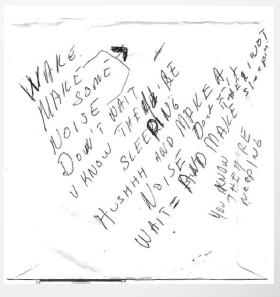 WAKE.
MAKE SOME
NOISE
DON'T WAIT
U KNOW THEY'RE
SLEEPING
HUSHHH AND MAKE A
NOISE DON'T
WAIT = AND MAKE THAT
YOU KNOW
THEY'RE
NODDING